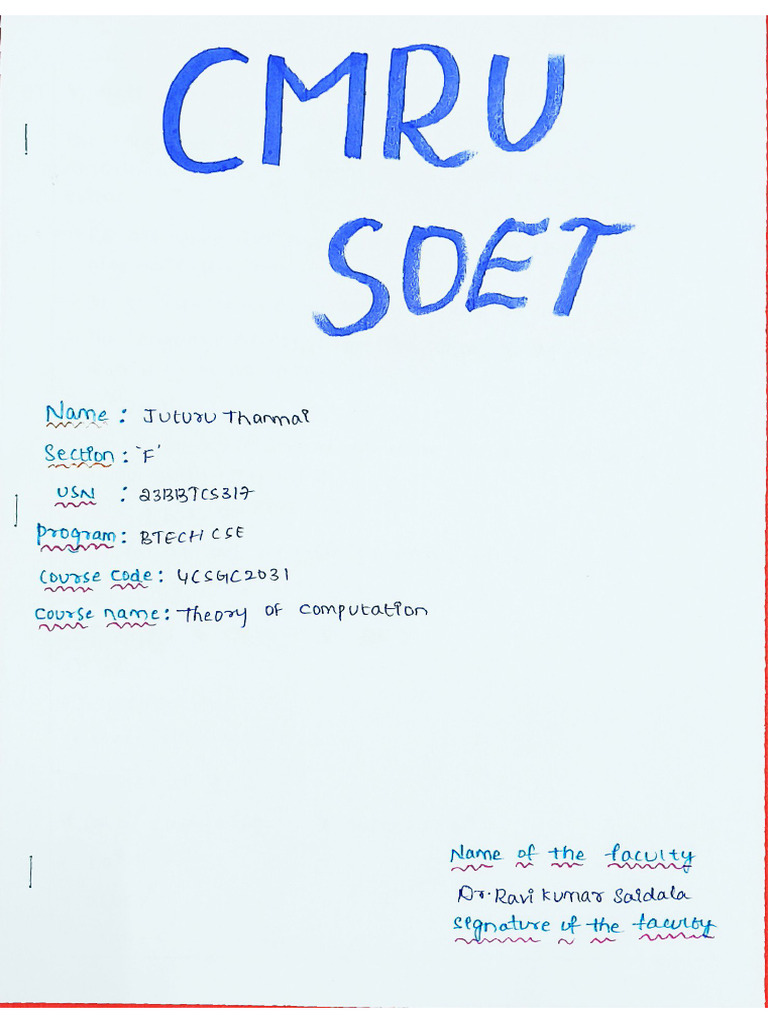 CMRU
SOET
Name : Juturu Thanmai
Section : 'F'
USN : 23BBTCS317
Program : BTECH CSE
Course code : 4CSGC2031
Course name : Theory of computation
Name of the faculty
Dr. Ravi Kumar Saidala
Segnature of the faculty